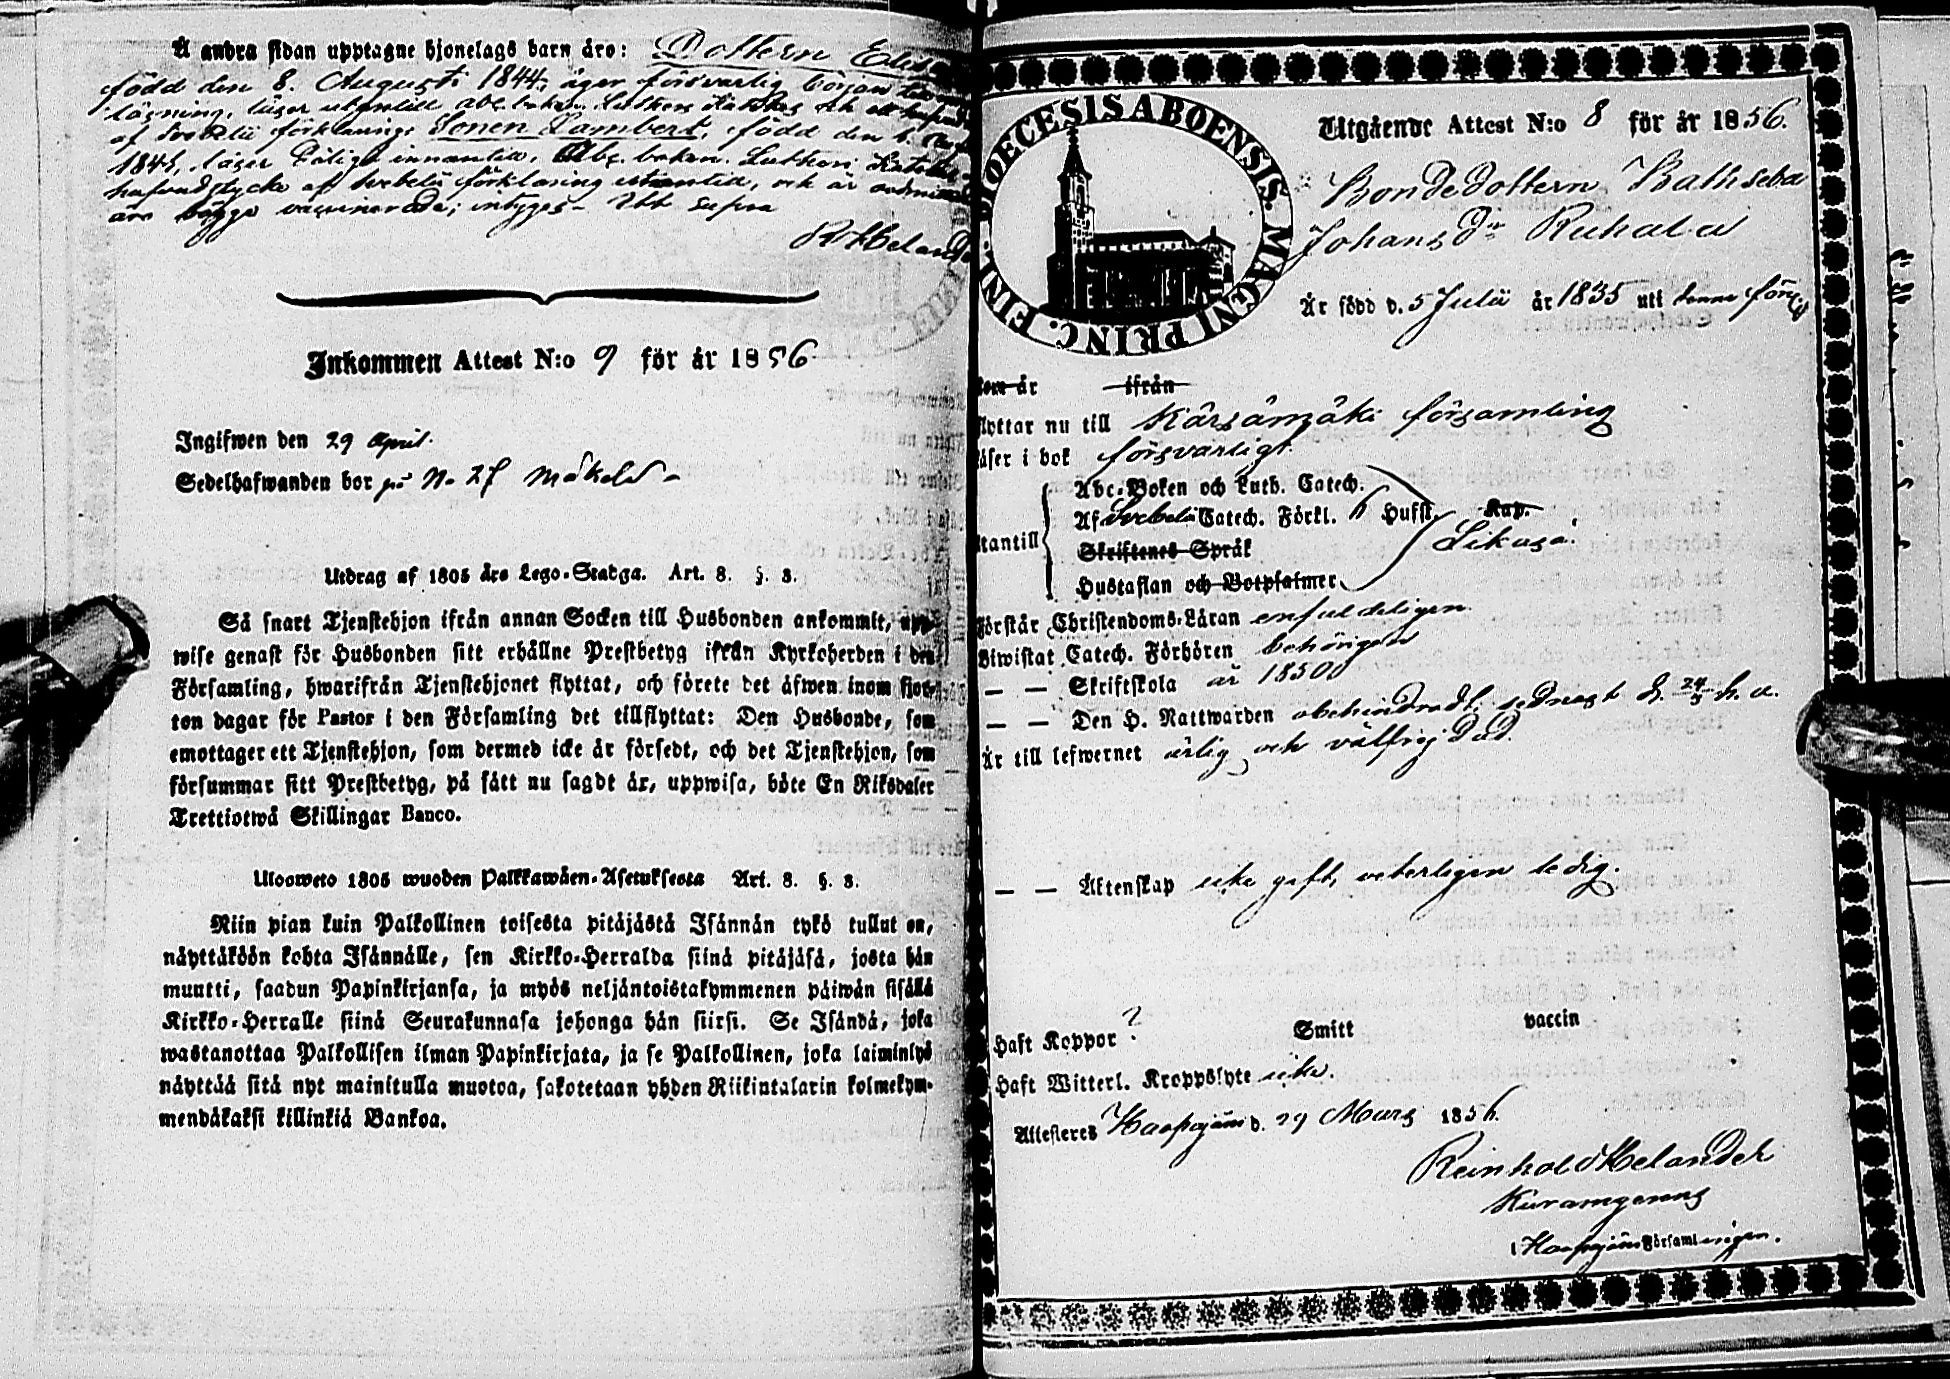 Å andra sidan upptagne hjonelags barn äro: Dottern
född den 8. Augusti 1844, äger försvarlig början
läsning, läser utantill abc boken Lutheri
af Svebelii förklaring; Sonen Lambert, född den
läser innantill, Abc. boken. Lutheri
hufvudstycke af Svebelii förklaring utantill, och är
äro bägge vaccinerade; intygas - Utt supra
R Heland
Inkommen Attest N:o 9 för år 1856
Ingifwen den 29 April.
Sedelhafwanden bor på N. 27 Mäkelä
Utdrag af 1805 års Lego-Stadga. Art. 8. §. 3.
Så snart Tjenstehjon ifrån annan Socken till Husbonden ankommit, upp-
wise genast för Husbonden sitt erhållne Prestbetyg ifrån Kyrkoherden i den
Församling, hwarifrån Tjenstehjonet flyttat, och förete det äfwen inom fjor-
ton dagar för Pastor i den Församling det tillflyttat: Den Husbonde, som
emottager ett Tjenstehjon, som dermed icke är försedt, och det Tjenstehjon, som
försummar sitt Prestbetyg, på sätt nu sagdt är, uppwisa, böte En Riksdaler
Trettiotwå Skillingar Banco.
Ulosweto 1805 wuoden Palkkawäen-Asetuksesta Art. 8. §. 3.
Niin pian kuin Palkollinen toisesta pitäjästä Isännän tykö tullut on,
näyttäköön kohta Isännälle, sen Kirkko-Herralda siinä pitäjäsä, josta hän
muutti, saadun Papinkirjansa, ja myös neljäntoistakymmenen päiwän sisällä
Kirkko-Herralle siinä Seurakunnasa johonga hän siirsi. Se Isändä, joka
wastanottaa Palkollisen ilman Papinkirjata, ja se Palkollinen, joka laiminlyö
näyttää sitä nyt mainitulla muotoa, sakotetaan yhden Riikintalarin kolmekym-
mendäkaksi killinkiä Bankoa.
DIOECESIS ABOENSIS. MAGNI PRINC. FINL.
Utgående Attest N:o 8 för år 1856.
Bondedottern Bathseba
Johans Dr Ruhala
Är född d. 5 Julii år 1835 uti denna förs.
som år ifrån
flyttar nu till Kärsämäki församling
läser i bok försvarligt.
Abc-Boken och Luth. Catech.
Af Svebelii Catech. Förkl. 6 Hufst. Kap.
utantill
Skriftenes Språk
Likaså.
Hustaflan och Botpsalmer
Förstår Christendoms-Läran enfaldeligen
Biwistat Catech. Förhören behörigen
— — Skriftskola år 1850
— — Den H. Nattwarden obehindradt, sednast d. 24/3 h. a.
Är till lefwernet ärlig och välfrejdad.
— — Äktenskap icke gift, veterligen ledig.
Haft Koppor ? Smitt vaccin
Haft Witterl. Kroppslyte icke.
Attesteres Haapajärvi d. 29 Mars 1856.
Reinhold Helander
Kuramgerens
i Haapajärvi Församlingen.